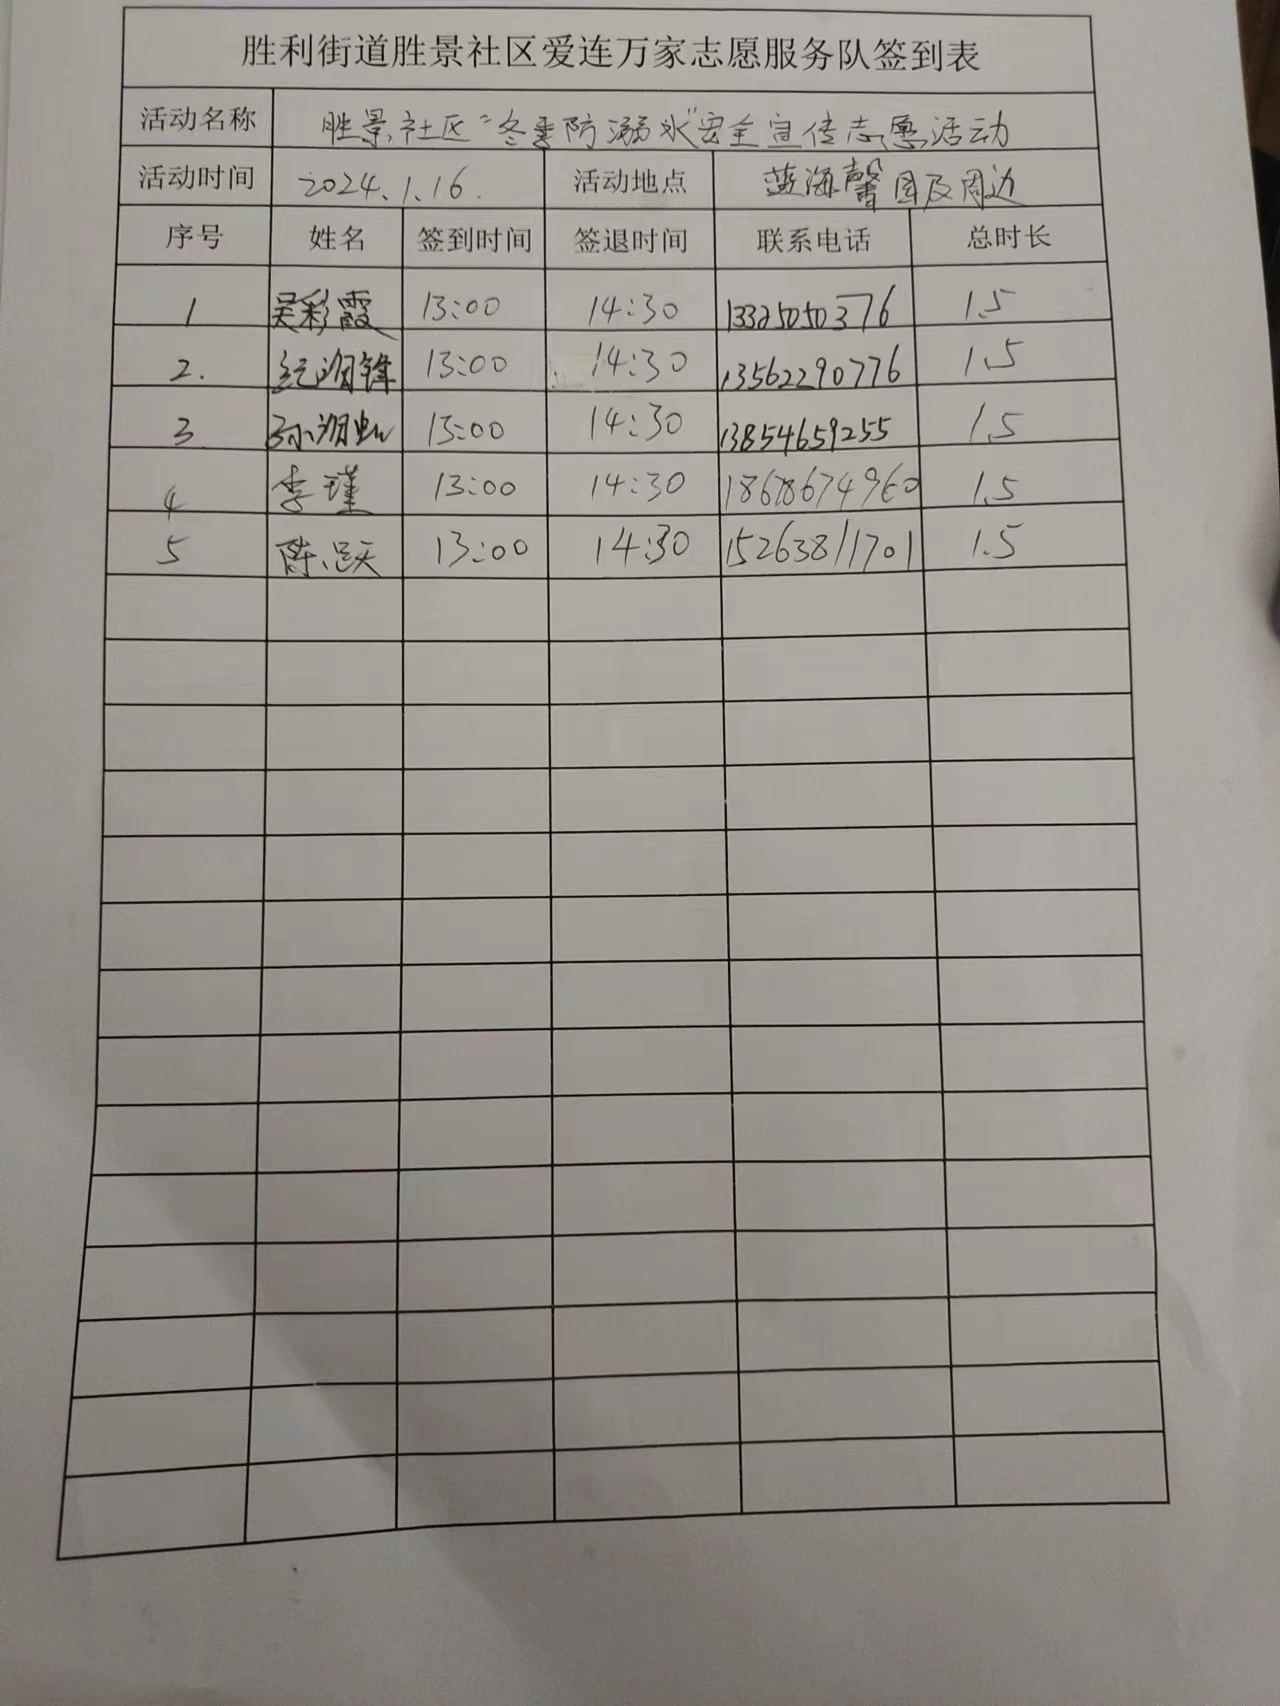 胜利街道胜景社区爱连万家志愿服务队签到表
活动名称 胜景社区“冬季防溺水”安全宣传志愿活动
活动时间 2024.1.16. 活动地点 蓝海馨园及周边
序号 姓名 签到时间 签退时间 联系电话 总时长
1 吴彩霞 13:00 14:30 13325050376 1.5
2. 13:00 14:30 13562290776 1.5
3 13:00 14:30 13854659255 1.5
4 李瑾 13:00 14:30 18678674960 1.5
5 陈跃 13:00 14:30 15263811701 1.5